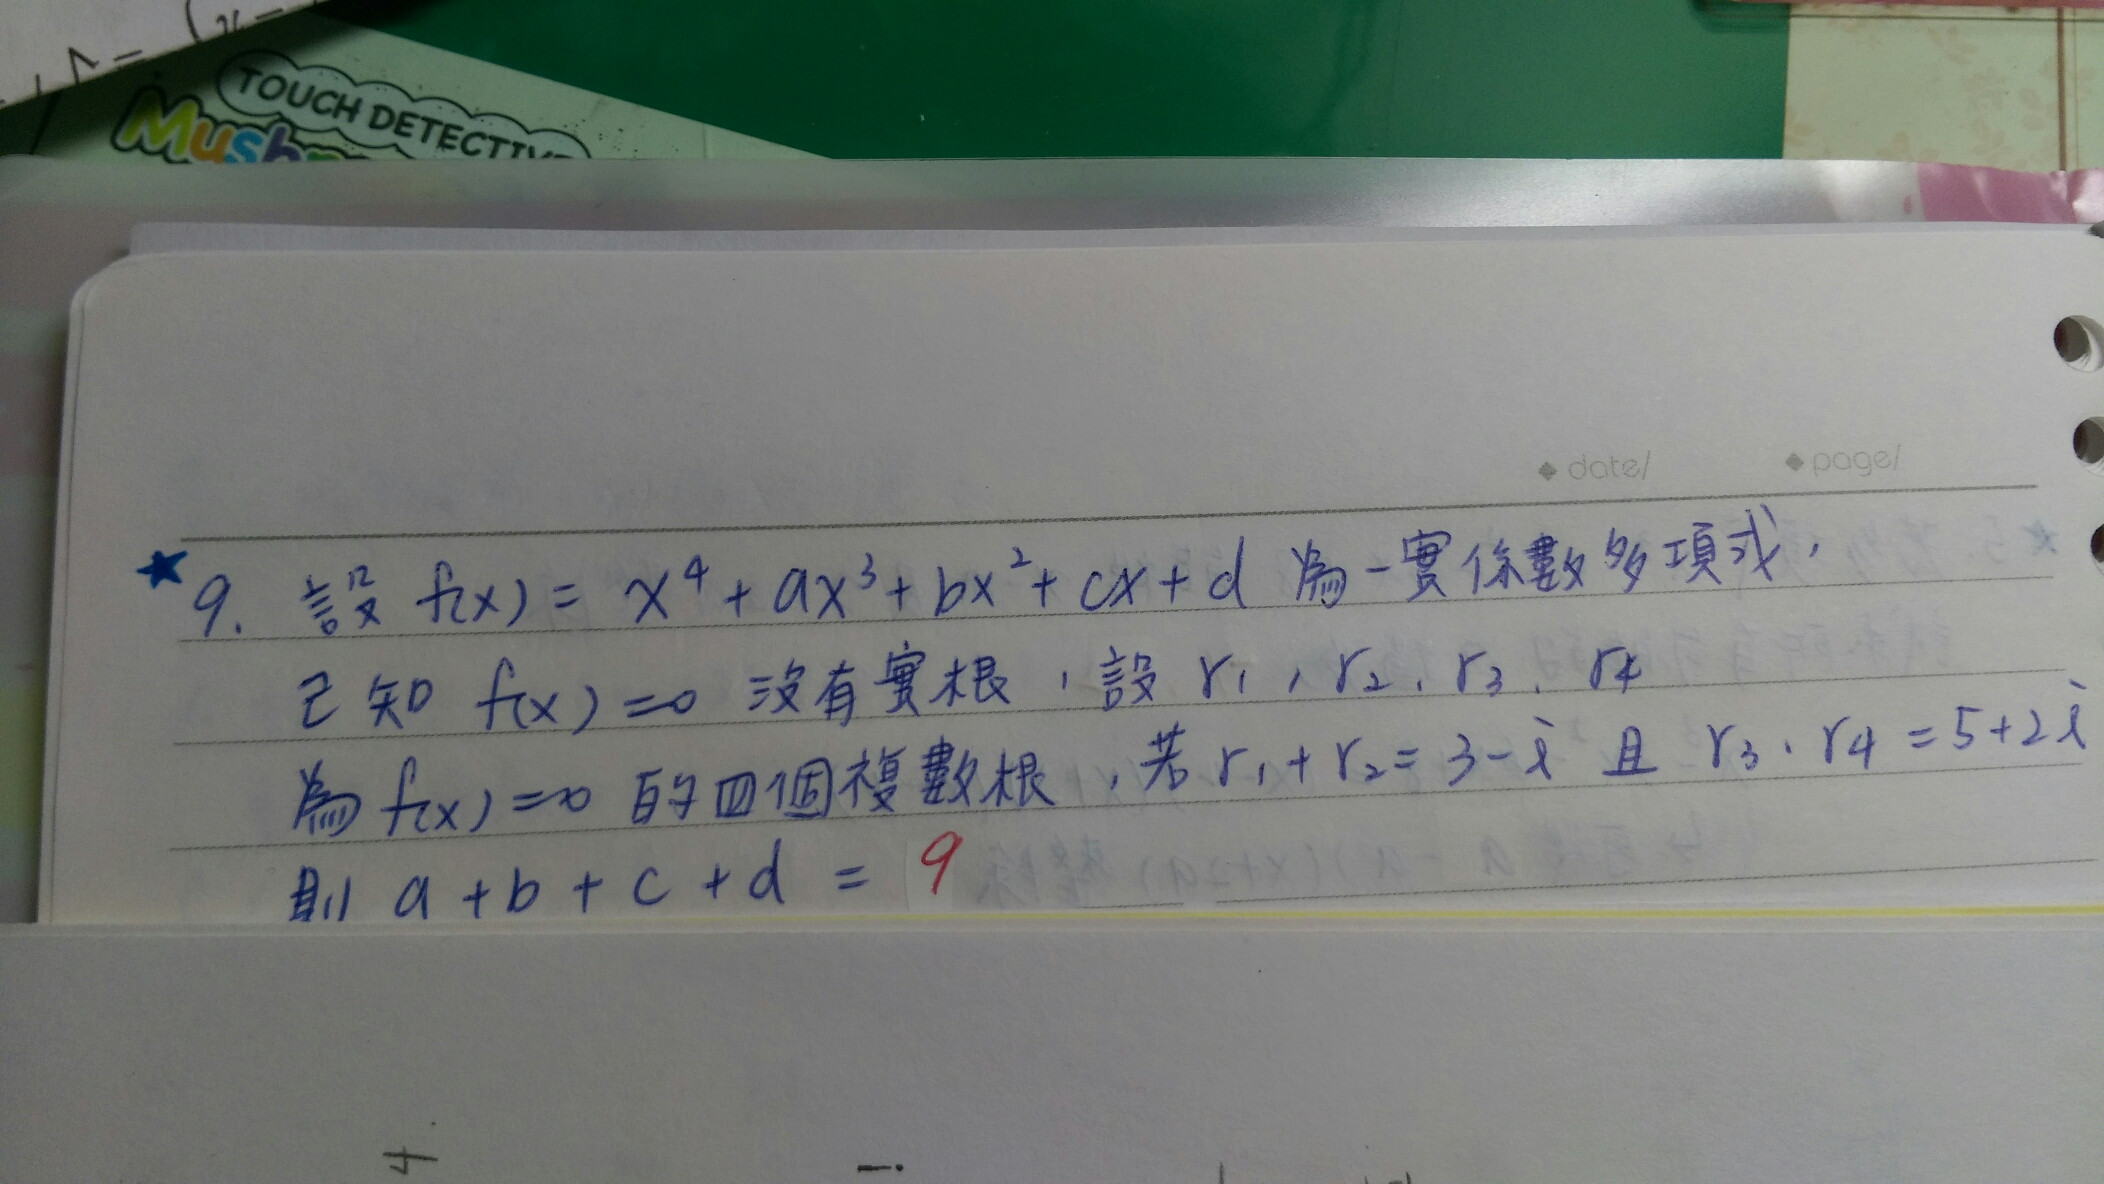 TOUCH DETECTIV
Mush
date/ page/
★9. 設 f(x) = x⁴ + ax³ + bx² + cx + d 為一實係數多項式,
已知 f(x) = 0 沒有實根,設 r₁, r₂, r₃, r₄
為 f(x) = 0 的四個複數根,若 r₁ + r₂ = 3 - i 且 r₃ · r₄ = 5 + 2i
則 a + b + c + d = 9